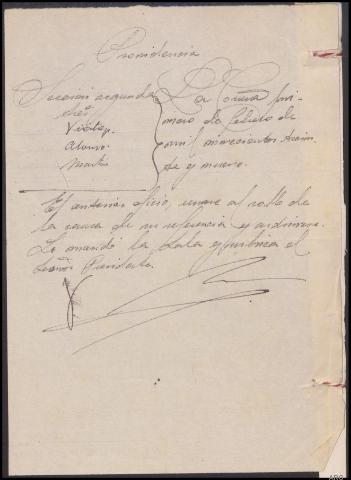 Presidencia
Sección segunda
Sres
Alonso.
Martín
La Coruña pri-
mero de Febrero de
mil novecientos trein-
ta y nueve.
El anterior oficio, únase al rollo de
la causa de su referencia y archívese.
Lo mandó la Sala y rubrica el
Señor Presidente.